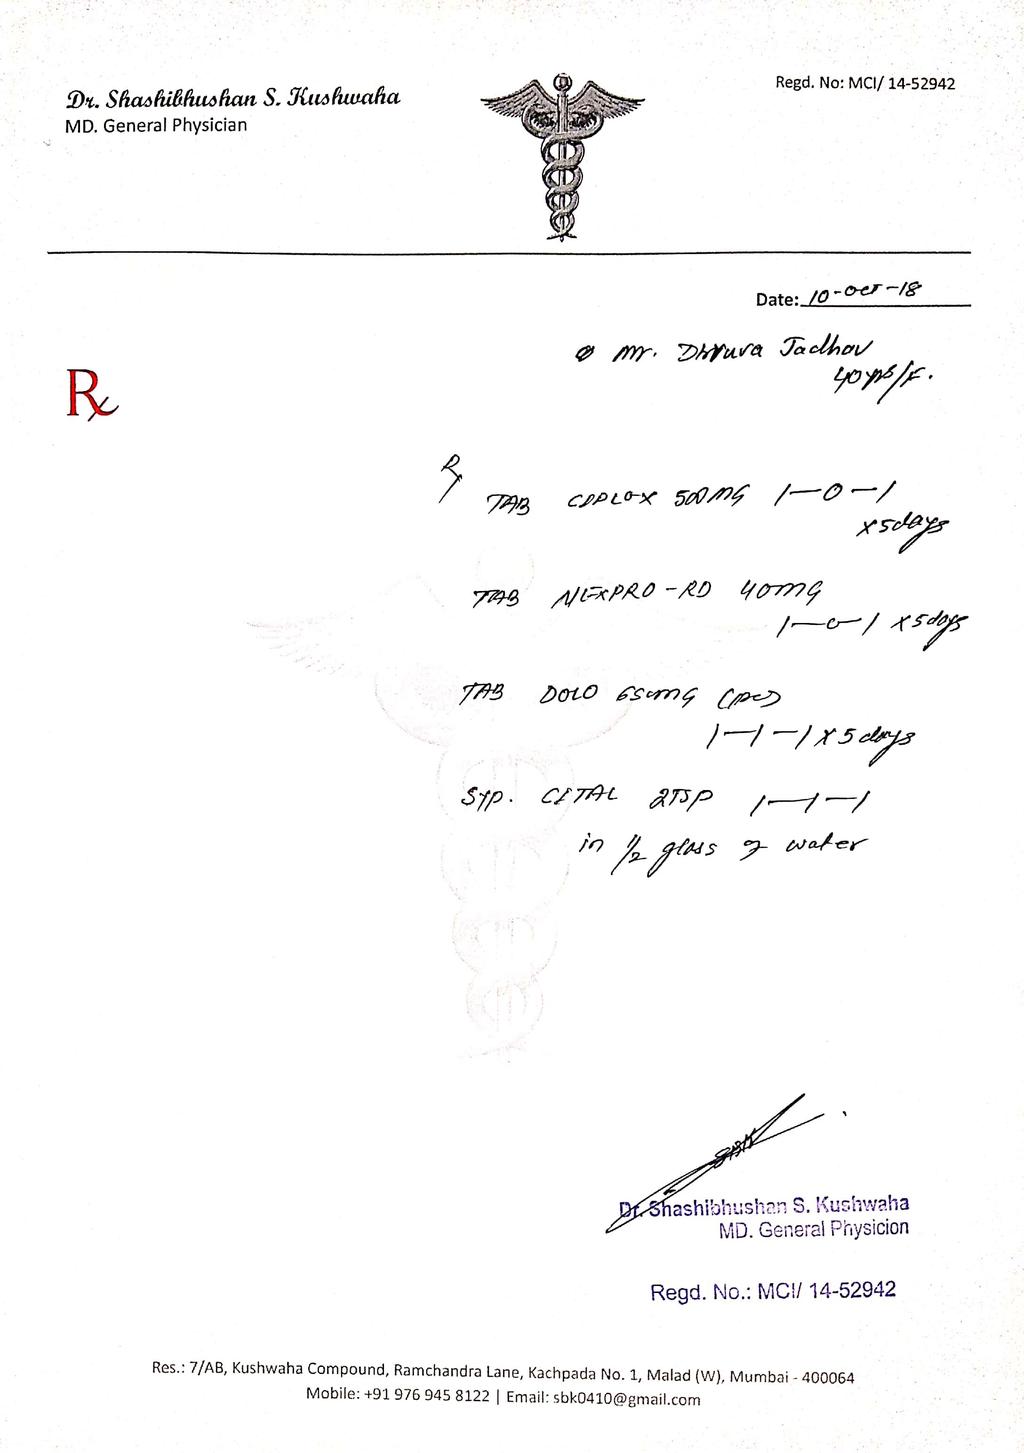 Dr. Shashibhushan S. Kushwaha
MD. General Physician
Regd. No: MCI/ 14-52942
Date: 10-Oct-18
Mr. Dhruva Jadhav
40 yrs/F.
Rx
Rx
TAB CIPLOX 500MG 1-0-1
x 5 days
TAB NEXPRO-RD 40mg
1-0-1 x 5 days
TAB DOLO 650mg
1-1-1 x 5 days
SYP. CITAL 2TSP 1-1-1
in 1/2 glass of water
Dr. Shashibhushan S. Kushwaha
MD. General Physicion
Regd. No.: MCI/ 14-52942
Res.: 7/AB, Kushwaha Compound, Ramchandra Lane, Kachpada No. 1, Malad (W), Mumbai - 400064
Mobile: +91 976 945 8122 | Email: sbk0410@gmail.com